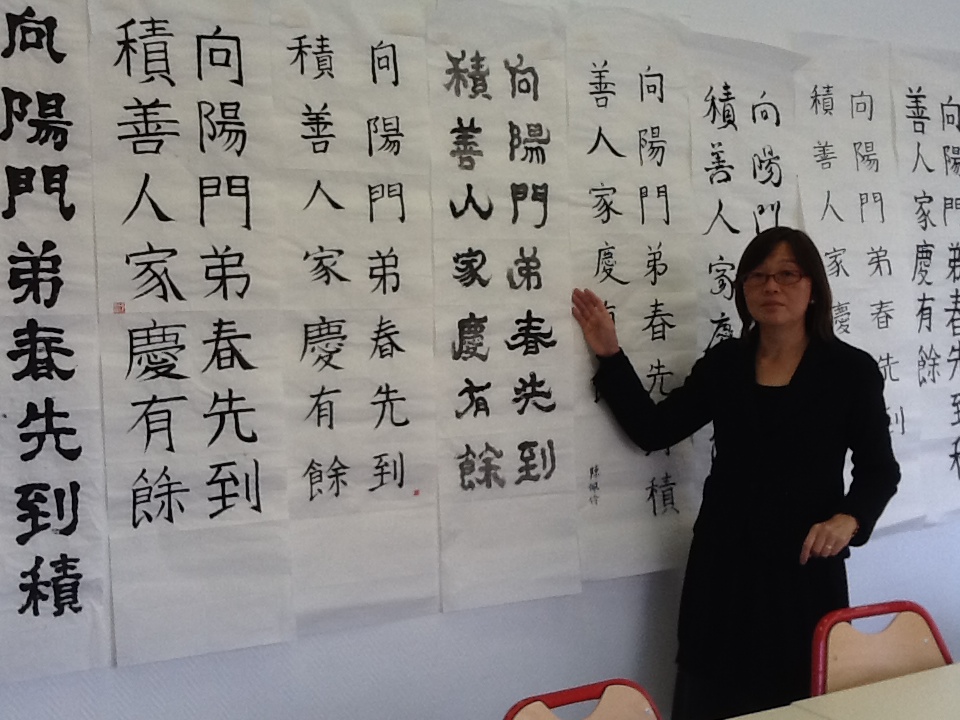 向陽門弟春先到
善人家慶有餘
向陽門弟春先到
積善人家慶
向陽門
積善人家慶
向陽門弟春先積
善人家慶有
向陽門弟春先到
積善人家慶有餘
向陽門弟春先到
積善人家慶有餘
向陽門弟春先到
積善人家慶有餘
向陽門弟春先到積